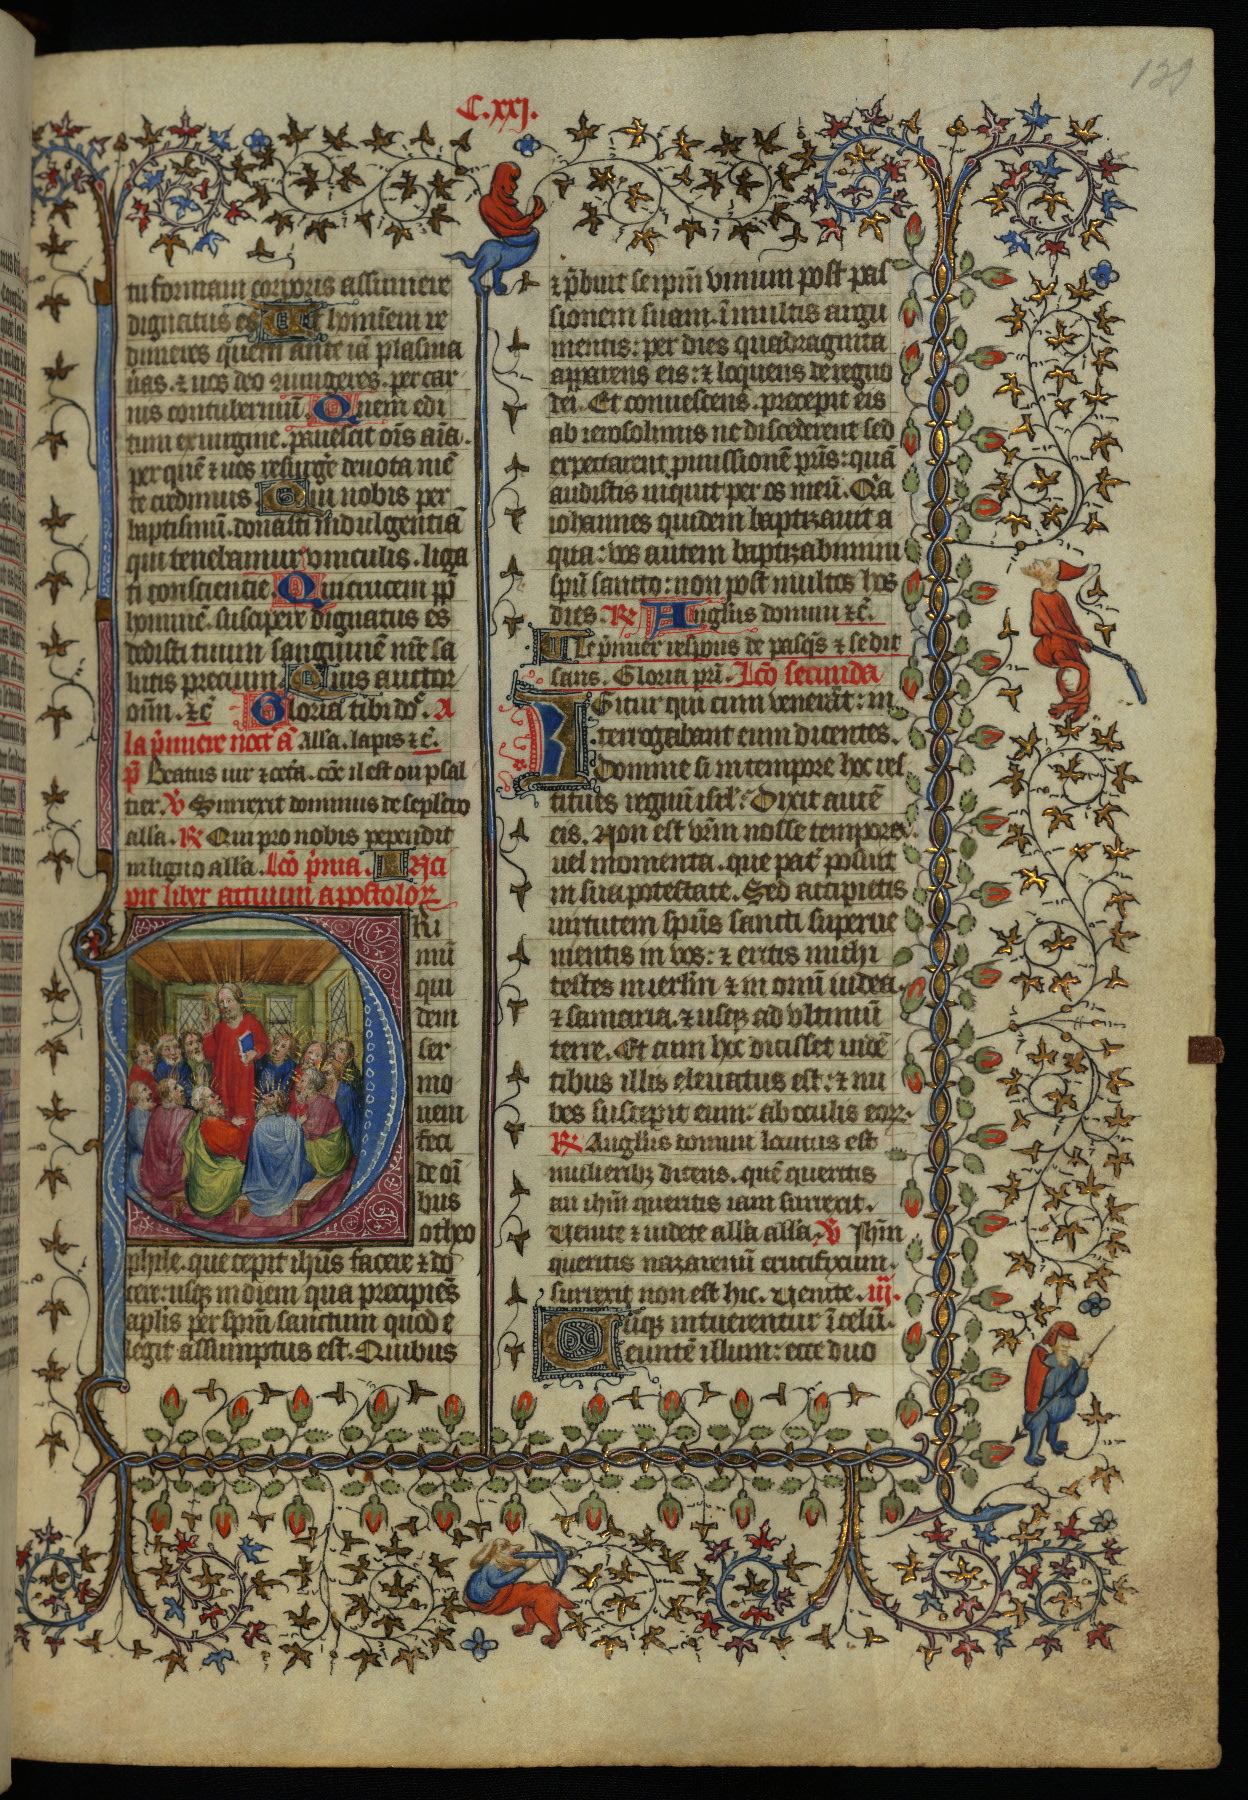 139
C.xxj.
tu formam corporis assumere
dignatus es Ut hominem re
dimeres quem ante iā plasma
ueras. & nos deo cōiungeres. per car
nis contuberniū. Quem edi
tum ex uirgine. pauescit oīs aīa.
per quē & nos resurge deuota mēte
credimus Qui nobis per
baptismū. donasti indulgentiā
qui tenebamur vinculis. liga
ti consciencie. Qui crucem pp̄
hominē. suscipere dignatus es
dedisti tuum sanguinē nr̄e sa
lutis precium. Eius auctor
oīm. &c̄ Gloria tibi dn̄e. A
la p̄miere noct̄ ā alla. lapis &c̄.
p̄ Beatus uir & cet̄a. cōe il est ou psal
tier. V̄ Surrexit dominus de sepulcro
alla. R̄ Qui pro nobis pependit
in ligno alla. Lcō p̄ma. Inci
pit liber actuum apostoloꝝ
Pri
mū
qui
dem
ser
mo
nem
feci
de oī
bus
o theo
phile. que cepit ihūs facere & do
cere: usqȝ in diem qua precipiēs
ap̄lis per sp̄m sanctum quos e
legit assumptus est. Quibus
& p̄buit seipm̄ viuum post pas
sionem suam. ī multis argu
mentis: per dies quadraginta
apparens eis: & loquens de regno
dei. Et conuescens. precepit eis
ab ierosolimis ne discederent sed
expectarent p̄missionē pr̄is: quā
audistis inquit per os meū. Qȝa
iohannes quidem baptizauit a
qua: vos autem baptizabimini
sp̄u sancto: non post multos hos
dies. R̄ Anglus domini &c̄.
Le p̄mier respons de pasqȝs & se dit
sans. Gloria pr̄i. Lcō secunda
Igitur qui cum venerāt: in
terrogabant eum dicentes.
Domine si in tempore hoc res
titues regnū isr̄l. Dixit autē
eis. Non est vr̄m nosse tempora
uel momenta. que pat̄ posuit
in sua potestate. Sed accipietis
uirtutem sp̄us sancti superue
nientis in vos: & eritis michi
testes in ierlm̄ & in omī iudea
& samaria. & usqȝ ad vltimū
terre. Et cum hec dixisset uidē
tibus illis eleuatus est: & nu
bes suscepit eum: ab oculis eoꝝ.
R̄ Anglus domini locutus est
mulieribȝ dicens. quē queritis
an ihm̄ queritis iam surrexit.
Uenite & uidete alla alla. V̄ Ihm̄
queritis nazarenū crucifixum.
surrexit non est hic. Uenite. iij.
Cūqȝ intuerentur ī celū.
euntē illum: ecce duo